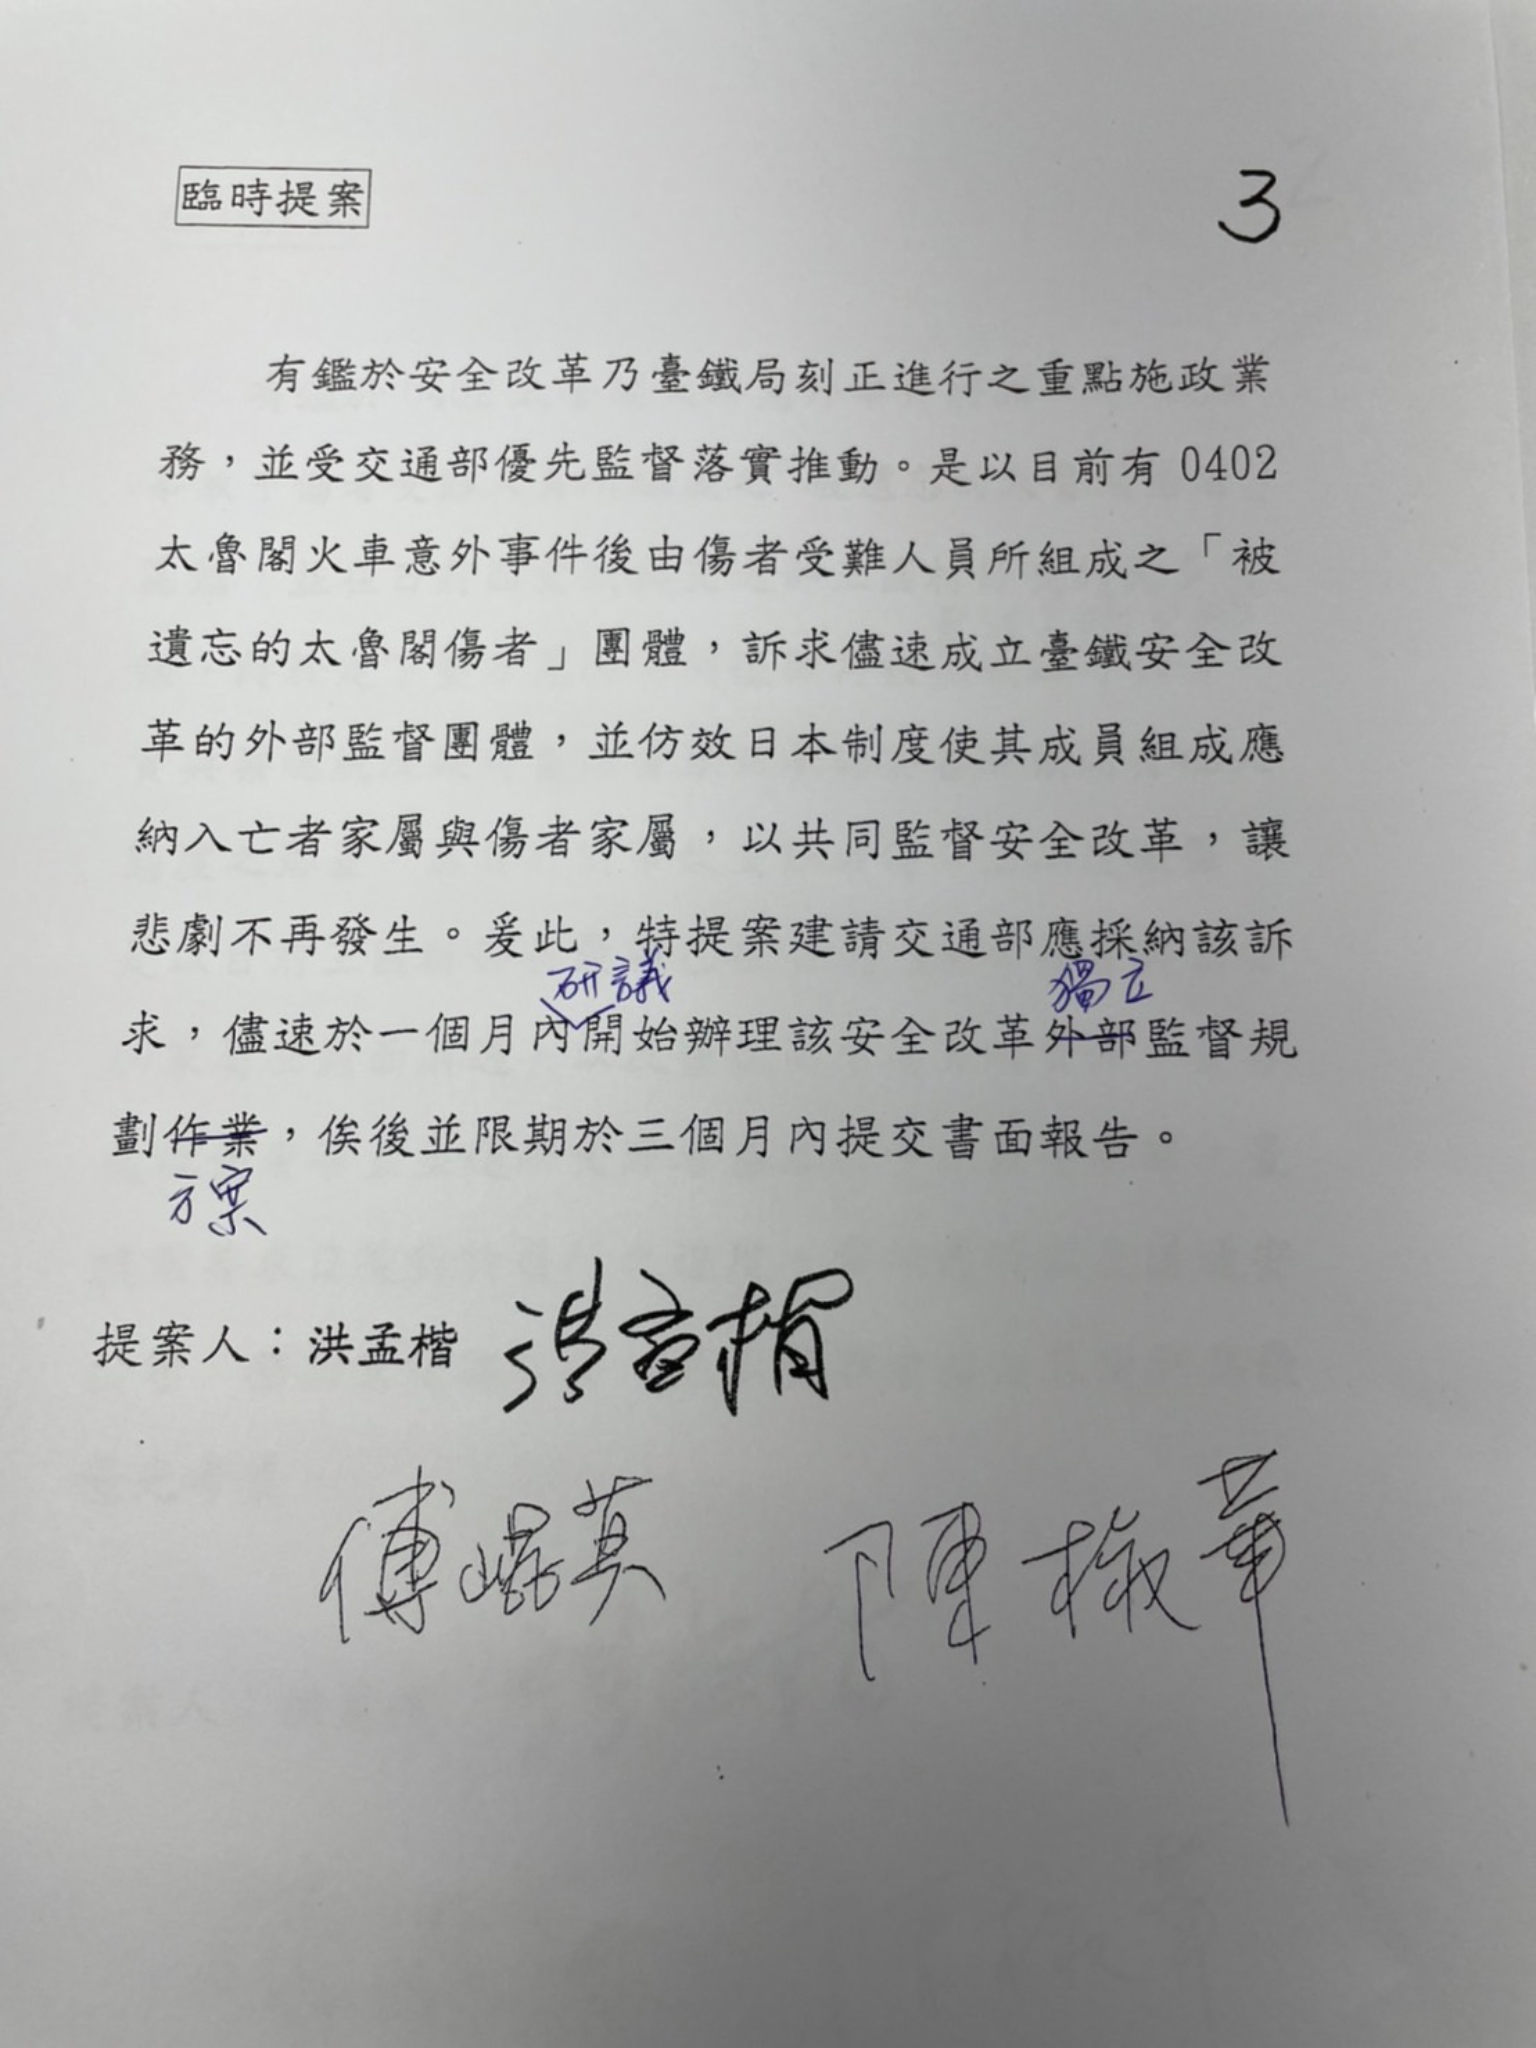 臨時提案
3
有鑑於安全改革乃臺鐵局刻正進行之重點施政業
務，並受交通部優先監督落實推動。是以目前有 0402
太魯閣火車意外事件後由傷者受難人員所組成之「被
遺忘的太魯閣傷者」團體，訴求儘速成立臺鐵安全改
革的外部監督團體，並仿效日本制度使其成員組成應
納入亡者家屬與傷者家屬，以共同監督安全改革，讓
悲劇不再發生。爰此，特提案建請交通部應採納該訴
研議 獨立
求，儘速於一個月內開始辦理該安全改革外部監督規
劃作業，俟後並限期於三個月內提交書面報告。
方案
提案人：洪孟楷
傅崐萁 陳椒華